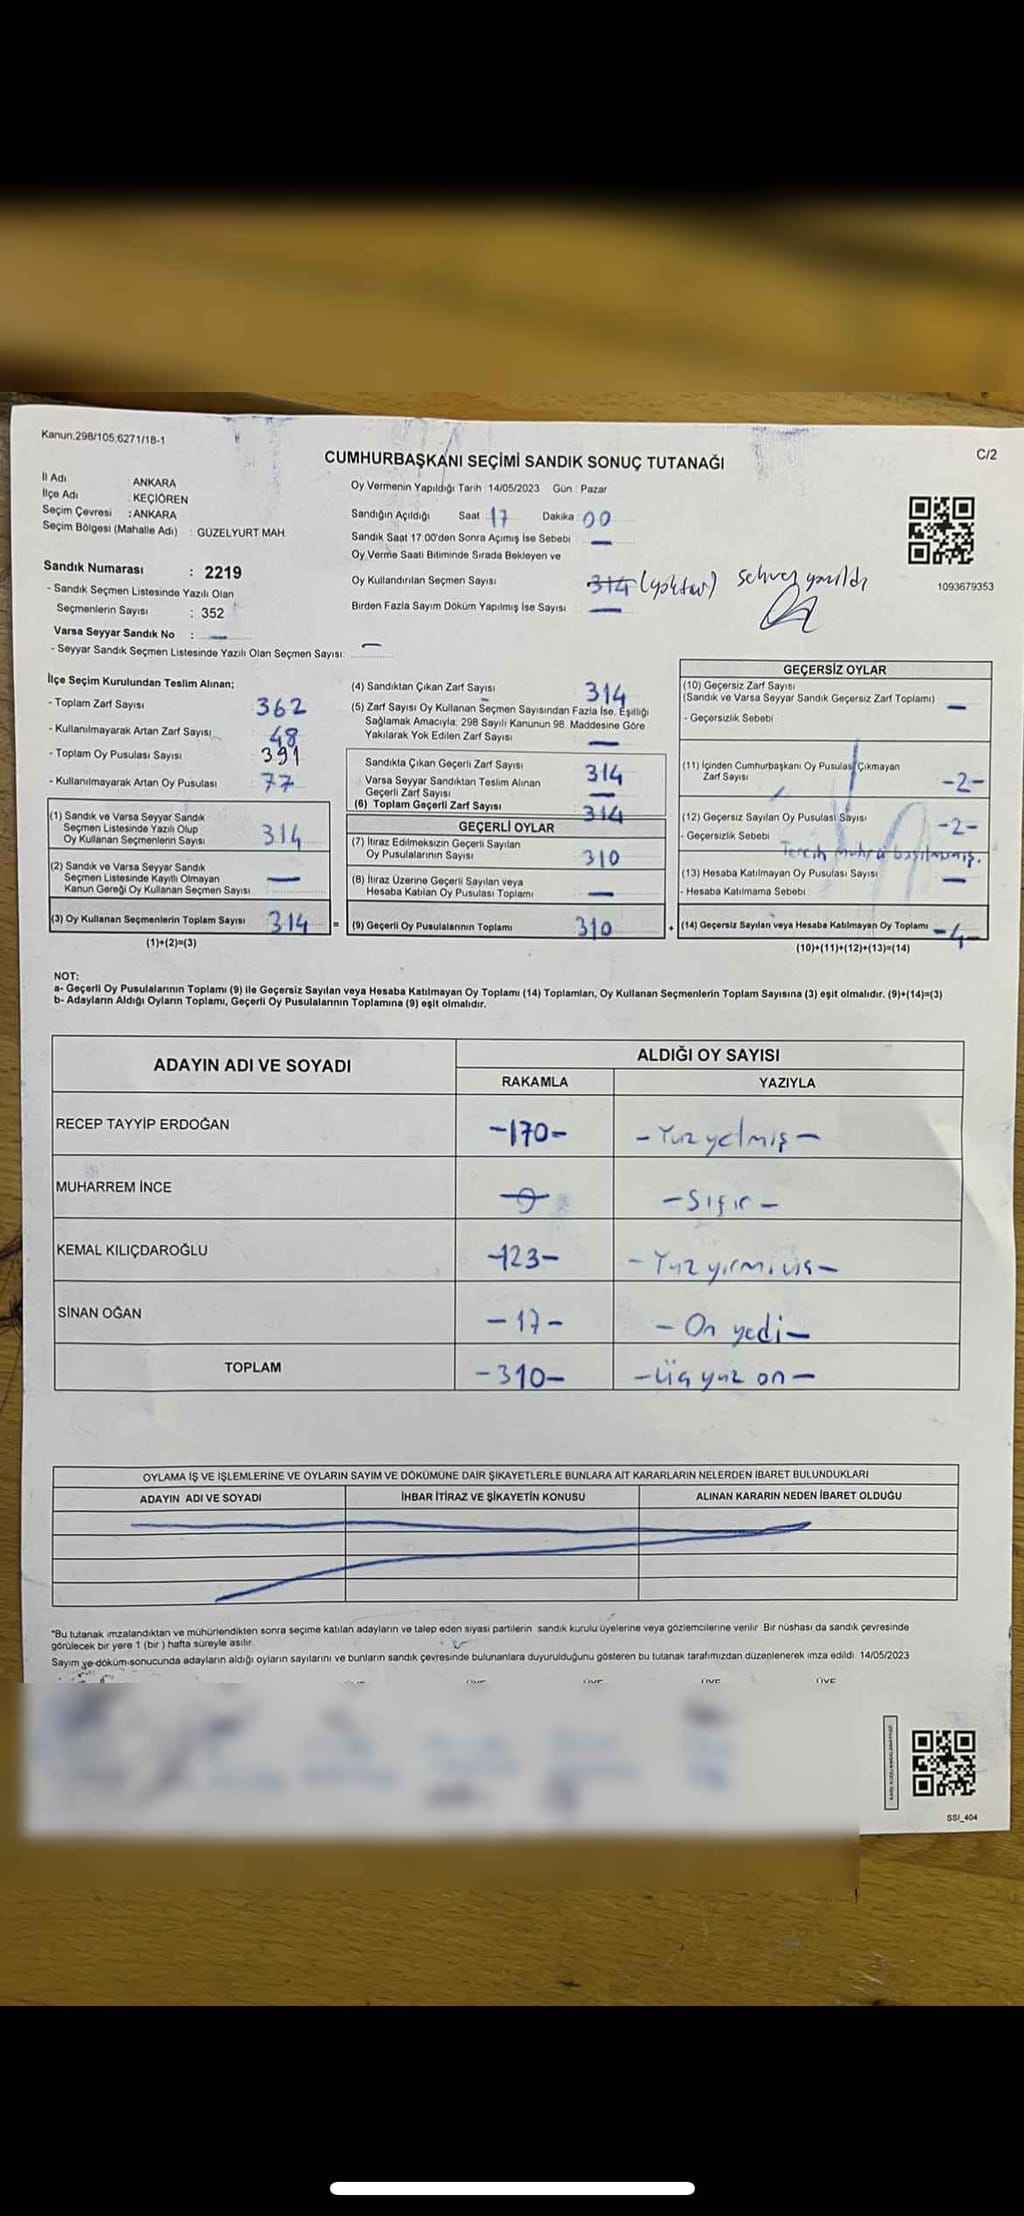 Kanun:298/105,6271/18-1
C/2
CUMHURBAŞKANI SEÇİMİ SANDIK SONUÇ TUTANAĞI
İl Adı : ANKARA
İlçe Adı : KEÇİÖREN
Seçim Çevresi : ANKARA
Seçim Bölgesi (Mahalle Adı) : GÜZELYURT MAH.
Sandık Numarası : 2219
- Sandık Seçmen Listesinde Yazılı Olan
Seçmenlerin Sayısı : 352
Varsa Seyyar Sandık No : —
- Seyyar Sandık Seçmen Listesinde Yazılı Olan Seçmen Sayısı: —
Oy Vermenin Yapıldığı Tarih : 14/05/2023 Gün : Pazar
Sandığın Açıldığı Saat 17 Dakika 00
Sandık Saat 17.00'den Sonra Açılmış İse Sebebi —
Oy Verme Saati Bitiminde Sırada Bekleyen ve
Oy Kullandırılan Seçmen Sayısı 314 (yoktur) sehven yazıldı
Birden Fazla Sayım Döküm Yapılmış İse Sayısı —
1093679353
İlçe Seçim Kurulundan Teslim Alınan;
- Toplam Zarf Sayısı 362
- Kullanılmayarak Artan Zarf Sayısı 48
- Toplam Oy Pusulası Sayısı 391
- Kullanılmayarak Artan Oy Pusulası 77
(1) Sandık ve Varsa Seyyar Sandık
Seçmen Listesinde Yazılı Olup
Oy Kullanan Seçmenlerin Sayısı 314
(2) Sandık ve Varsa Seyyar Sandık
Seçmen Listesinde Kayıtlı Olmayan
Kanun Gereği Oy Kullanan Seçmen Sayısı —
(3) Oy Kullanan Seçmenlerin Toplam Sayısı 314 =
(1)+(2)=(3)
(4) Sandıktan Çıkan Zarf Sayısı 314
(5) Zarf Sayısı Oy Kullanan Seçmen Sayısından Fazla İse, Eşitliği
Sağlamak Amacıyla; 298 Sayılı Kanunun 98. Maddesine Göre
Yakılarak Yok Edilen Zarf Sayısı —
Sandıkta Çıkan Geçerli Zarf Sayısı 314
Varsa Seyyar Sandıktan Teslim Alınan
Geçerli Zarf Sayısı —
(6) Toplam Geçerli Zarf Sayısı 314
GEÇERLİ OYLAR
(7) İtiraz Edilmeksizin Geçerli Sayılan
Oy Pusulalarının Sayısı 310
(8) İtiraz Üzerine Geçerli Sayılan veya
Hesaba Katılan Oy Pusulası Toplamı —
(9) Geçerli Oy Pusulalarının Toplamı 310 +
GEÇERSİZ OYLAR
(10) Geçersiz Zarf Sayısı
(Sandık ve Varsa Seyyar Sandık Geçersiz Zarf Toplamı) —
- Geçersizlik Sebebi
(11) İçinden Cumhurbaşkanı Oy Pusulası Çıkmayan
Zarf Sayısı -2-
(12) Geçersiz Sayılan Oy Pusulası Sayısı -2-
- Geçersizlik Sebebi
Tercih mührü basılmamış.
(13) Hesaba Katılmayan Oy Pusulası Sayısı —
- Hesaba Katılmama Sebebi
(14) Geçersiz Sayılan veya Hesaba Katılmayan Oy Toplamı -4-
(10)+(11)+(12)+(13)=(14)
NOT:
a- Geçerli Oy Pusulalarının Toplamı (9) ile Geçersiz Sayılan veya Hesaba Katılmayan Oy Toplamı (14) Toplamları, Oy Kullanan Seçmenlerin Toplam Sayısına (3) eşit olmalıdır. (9)+(14)=(3)
b- Adayların Aldığı Oyların Toplamı, Geçerli Oy Pusulalarının Toplamına (9) eşit olmalıdır.
ADAYIN ADI VE SOYADI
ALDIĞI OY SAYISI
RAKAMLA YAZIYLA
RECEP TAYYİP ERDOĞAN -170- - Yüz yetmiş -
MUHARREM İNCE -0- - Sıfır -
KEMAL KILIÇDAROĞLU -123- - Yüz yirmi üç -
SİNAN OĞAN - 17 - - On yedi -
TOPLAM - 310 - - üç yüz on -
OYLAMA İŞ VE İŞLEMLERİNE VE OYLARIN SAYIM VE DÖKÜMÜNE DAİR ŞİKAYETLERLE BUNLARA AİT KARARLARIN NELERDEN İBARET BULUNDUKLARI
ADAYIN ADI VE SOYADI İHBAR İTİRAZ VE ŞİKAYETİN KONUSU ALINAN KARARIN NEDEN İBARET OLDUĞU
*Bu tutanak imzalandıktan ve mühürlendikten sonra seçime katılan adayların ve talep eden siyasi partilerin sandık kurulu üyelerine veya gözlemcilerine verilir. Bir nüshası da sandık çevresinde
görülecek bir yere 1 (bir) hafta süreyle asılır.
Sayım ve döküm sonucunda adayların aldığı oyların sayılarını ve bunların sandık çevresinde bulunanlara duyurulduğunu gösteren bu tutanak tarafımızdan düzenlenerek imza edildi. 14/05/2023
ÜYE ÜYE ÜYE ÜYE
SSI_404